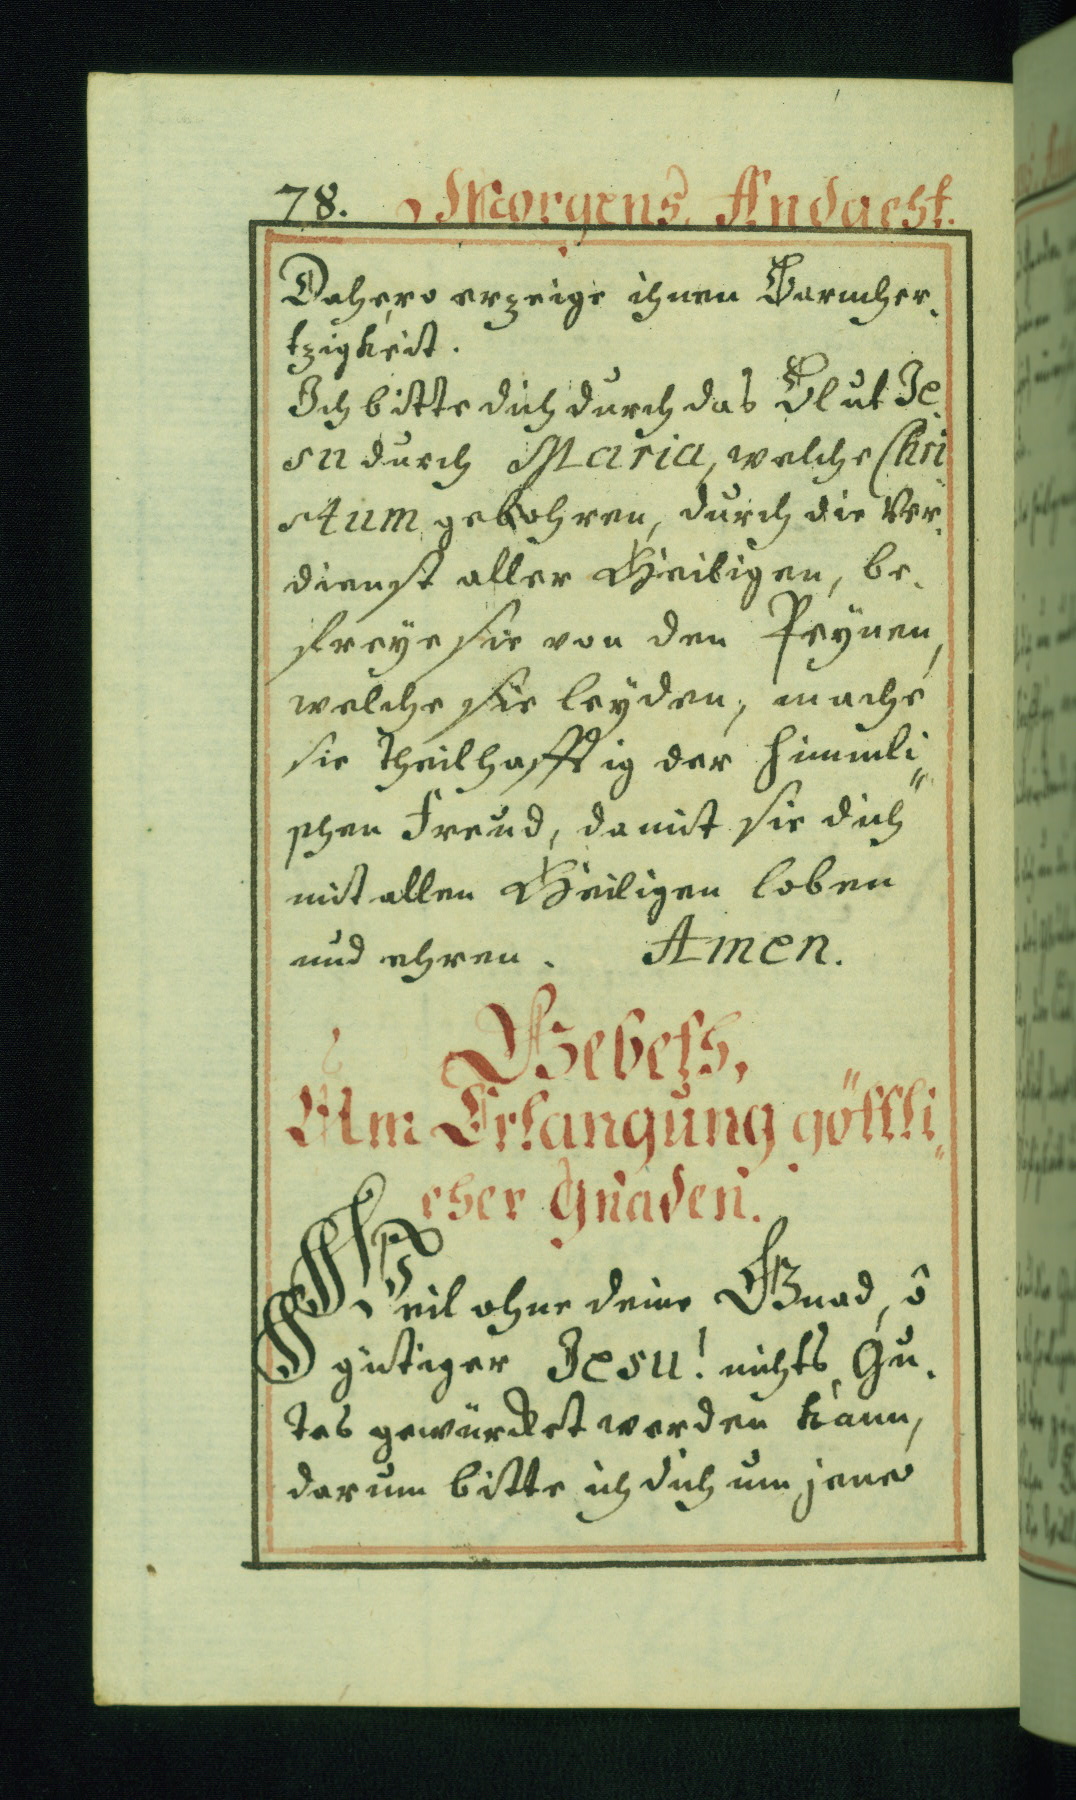 78. Morgens. Andacht.
Dahero erzeige ihnen Barmher-
tzigkeit.
Ich bitte dich durch das Blut Je
su durch Maria, welche Chri
stum gebohren, durch die Ver-
dienst aller Heiligen, be-
freye sie von den Peÿnen,
welche sie leÿden, mache
sie theilhafftig der himmli„
schen Freud, damit sie dich
mit allen Heiligen loben
und ehren. Amen.
Gebeth,
Um Erlangung göttli„
cher Gnaden.
Weil ohne deine Gnad, ô
gütiger Jesu! nichts Gu-
tes gewürcket werden kann,
darum bitte ich dich um jene